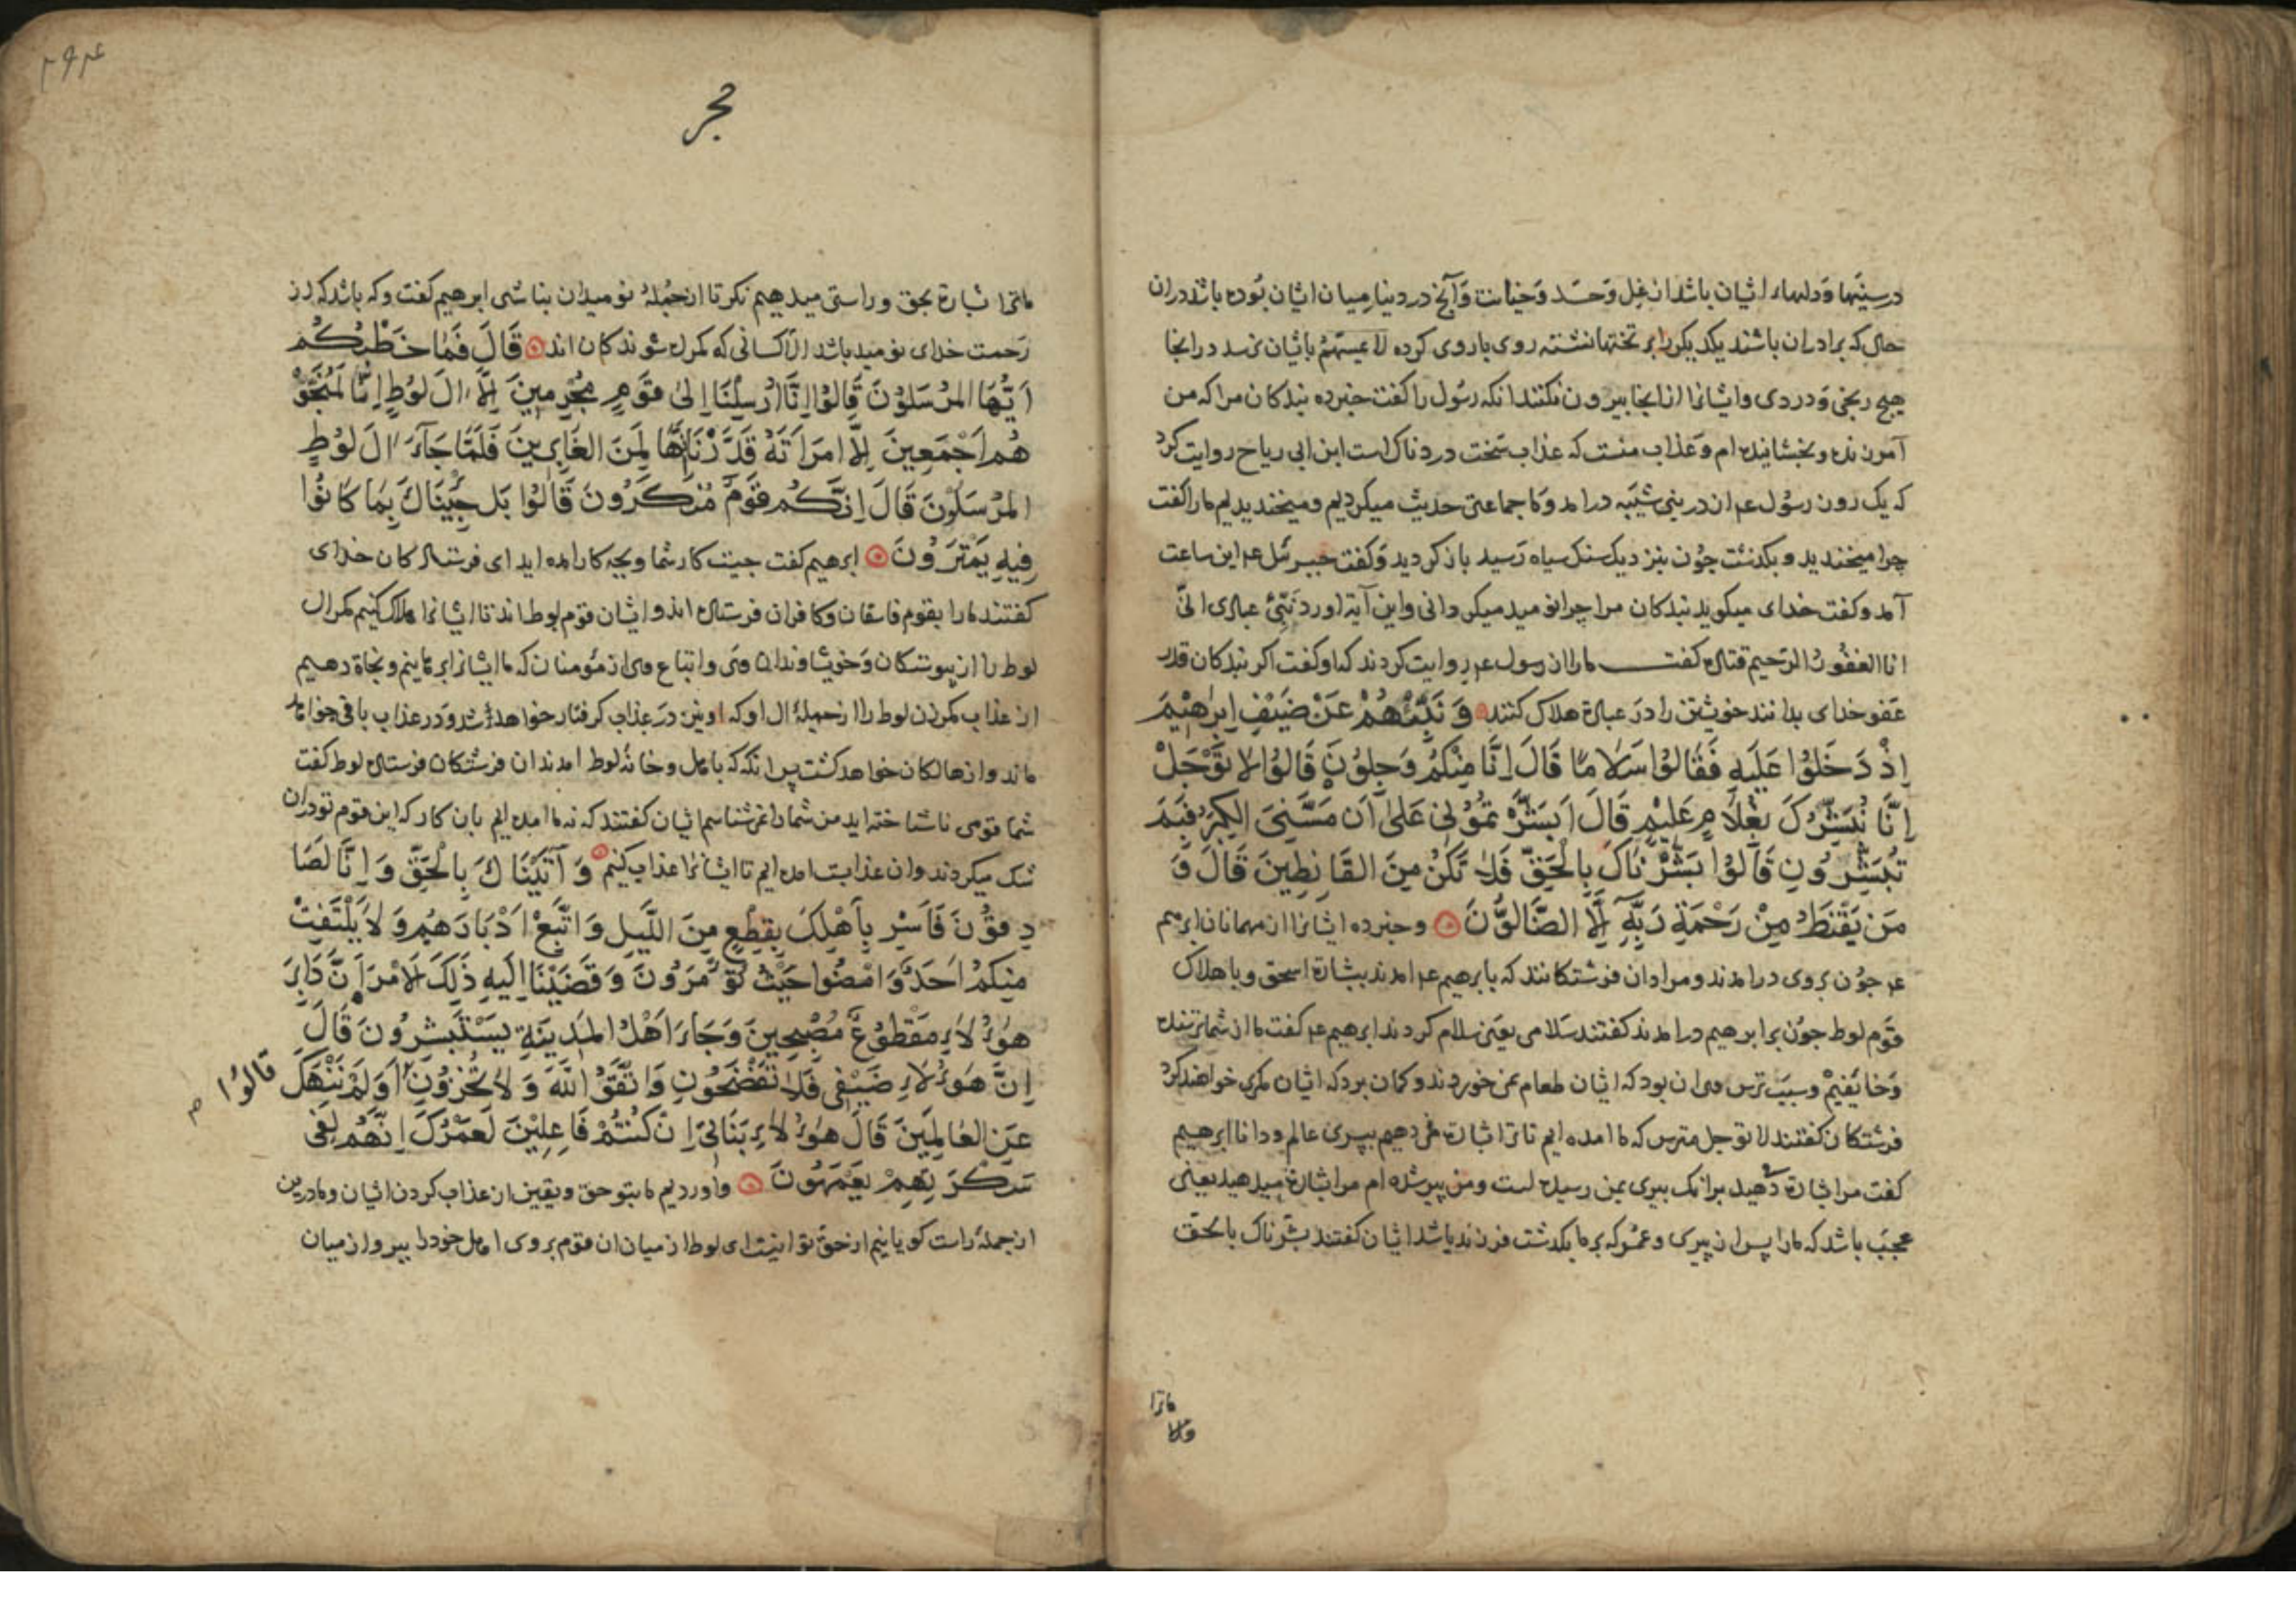 در سینها و دلهاء ایشان باشد از غل و حسد و خیانت و آنچ در دنیا میان ایشان بوده باشد در آن
حال که برادران باشند یکدیکر را بر تختها نشسته روی با روی کرده لا یمسهم بایشان نرسد در انجا
هیچ رنجی و دردی و ایشانرا از انجا بیرون نکنند انکه رسول را کفت خبر ده بندکان مرا که من
آمرزنده و بخشاینده ام و عذاب منست که عذاب سخت دردناک است ابن ابی ریاح روایت کرد
که یک روز رسول عم از در بنی شیبه درامد و ما جماعتی حدیث میکردیم و میخندیدیم مارا کفت
چرا میخندید و بکذشت چون بنزدیک سنک سیاه رسید باز کردید و کفت جبرئل عم این ساعت
آمد و کفت خدای میکوید بندکان مرا چرا نومید میکردانی و این آیة اورد نَبِّئْ عبادی انّی
انا الغفور الرحیم قتاده کفت مارا از رسول عم روایت کردند که او کفت اکر بندکان قدر
عفو خدای بدانند خویشتن را در عبادة هلاک کنند وَ نَبِّئْهُمْ عَنْ ضَيْفِ اِبْرٰهِيْمَ
اِذْ دَخَلُوْا عَلَيْهِ فَقَالُوْا سَلَامًا قَالَ اِنَّا مِنْكُمْ وَجِلُوْنَ قَالُوْا لَا تَوْجَلْ
اِنَّا نُبَشِّرُكَ بِغُلَامٍ عَلِيْمٍ قَالَ اَبَشَّرْتُمُوْنِىْ عَلٰى اَنْ مَسَّنِىَ الْكِبَرُ فَبِمَ
تُبَشِّرُوْنِ قَالُوْا بَشَّرْنَاكَ بِالْحَقِّ فَلَا تَكُنْ مِنَ الْقَانِطِينَ قَالَ وَ
مَنْ يَقْنَطُ مِنْ رَحْمَةِ رَبِّهِ اِلَّا الضَّالُّوْنَ و خبر ده ایشانرا از مهمانان ابرهیم
عم چون بروی درامدند و مراد ان فرشتکانند که بابرهیم عم امدند ببشارة اسحق و باهلاک
قوم لوط چون برابرهیم درامدند کفتند سلامی یعنی سلام کردند ابرهیم عم کفت ما از شما ترسنده
و خایفیم و سبب ترس وی ان بود که ایشان طعام نمی خوردند و کمان برد که ایشان مکری خواهند کرد
فرشتکان کفتند لا توجل مترس که ما امده ایم تا ترا بشارة می دهیم بپسری عالم و دانا ابرهیم
کفت مرا بشارة دهید برانک پیری بمن رسیده است و من پیر شده ام مرا بشارة میدهید یعنی
عجب باشد که مارا پس از پیری و عمر که بر ما بکذشت فرزند باشد ایشان کفتند بشرناک بالحق
ماترا
حجر
ماترا بشارة بحق و راستی میدهیم نکر تا از جملهٔ نومیدان نباشی ابرهیم کفت و که باشد که از
رحمت خدای نومید باشد الا کسانی که کمراه شوندکان اند قَالَ فَمَا خَطْبُكُمْ
اَيُّهَا الْمُرْسَلُوْنَ قَالُوْا اِنَّا اُرْسِلْنَا اِلٰى قَوْمٍ مُجْرِمِينَ اِلَّا اٰلَ لُوْطٍ اِنَّا لَمُنَجُّوْ
هُمْ اَجْمَعِينَ اِلَّا امْرَاَتَهُ قَدَّرْنَا اِنَّهَا لَمِنَ الْغَابِرِيْنَ فَلَمَّا جَاءَ اٰلَ لُوْطٍ
الْمُرْسَلُوْنَ قَالَ اِنَّكُمْ قَوْمٌ مُنْكَرُوْنَ قَالُوْا بَلْ جِئْنَاكَ بِمَا كَانُوْا
فِيْهِ يَمْتَرُوْنَ ابرهیم کفت چیست کار شما و بچه کار امده اید ای فرستادکان خدای
کفتند مارا بقوم فاسقان و کافران فرستاده اند و ایشان قوم لوط اند تا ایشانرا هلاک کنیم مکر ال
لوط را از پیوستکان و خویشاوندان وی و اتباع وی از مؤمنان که ما ایشانرا برهانیم و نجاة دهیم
از عذاب مکر زن لوط را از جملهٔ ال او که او نیز در عذاب کرفتار خواهد شد و در عذاب باقی خواهد
ماند و از هالکان خواهد کشت پس انکه که بامل و خانهٔ لوط امدند ان فرشتکان فرستاده لوط کفت
شما قومی ناشناخته اید من شمارا نمی شناسم ایشان کفتند که نه ما امده ایم بان کار که این قوم تو دران
شک میکردند و ان عذابست امده ایم تا ایشانرا عذاب کنیم وَ اَتَيْنَاكَ بِالْحَقِّ وَ اِنَّا لَصَا
دِقُوْنَ فَاَسْرِ بِاَهْلِكَ بِقِطْعٍ مِنَ اللَّيْلِ وَ اتَّبِعْ اَدْبَارَهُمْ وَ لَا يَلْتَفِتْ
مِنْكُمْ اَحَدٌ وَّامْضُوْا حَيْثُ تُؤْمَرُوْنَ وَ قَضَيْنَا اِلَيْهِ ذٰلِكَ الْاَمْرَ اَنَّ دَابِرَ
هٰؤُلَاءِ مَقْطُوْعٌ مُصْبِحِيْنَ وَ جَاءَ اَهْلُ الْمَدِيْنَةِ يَسْتَبْشِرُوْنَ قَالَ
اِنَّ هٰؤُلَاءِ ضَيْفِى فَلَا تَفْضَحُوْنِ وَ اتَّقُوْا اللّٰهَ وَ لَا تُخْزُوْنِ اَوَ لَمْ نَنْهَكَ
قَالُوْا
عَنِ الْعَالَمِيْنَ قَالَ هٰؤُلَاءِ بَنَاتِىْ اِنْ كُنْتُمْ فَاعِلِيْنَ لَعَمْرُكَ اِنَّهُمْ لَفِى
سَكْرَتِهِمْ يَعْمَهُوْنَ و اوردیم ما بتو حق و یقین از عذاب کردن ایشان و ما درین
از جملهٔ راست کویانیم از حق تو انست ای لوط از میان ان قوم بروی امل خود را ببر و از میان